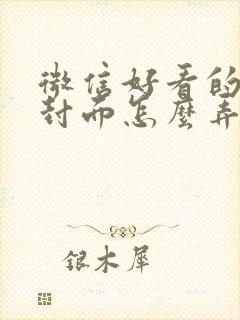 微信好看的
封面怎麼弄
银木犀